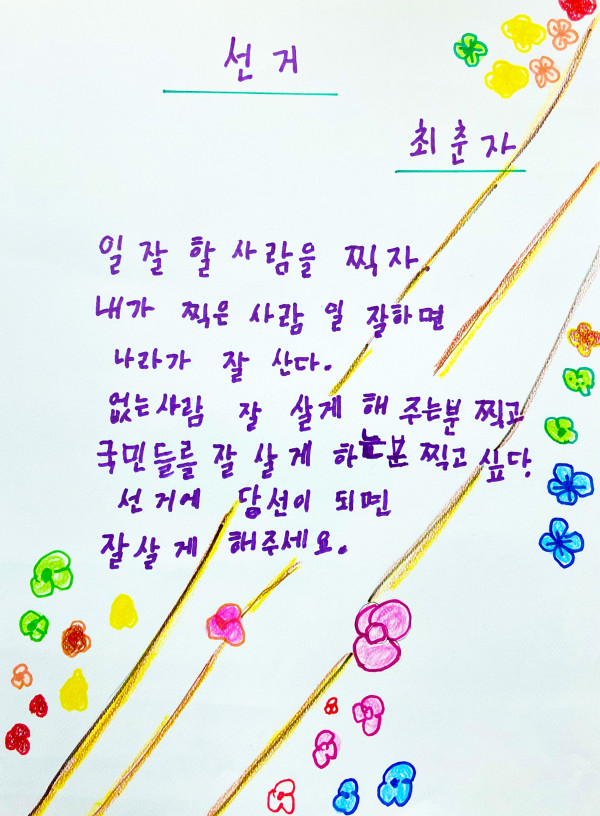 선거
최춘자
일 잘 할 사람을 찍자.
내가 찍은 사람 일 잘하면
나라가 잘 산다.
없는사람 잘 살게 해 주는분 찍고
국민들를 잘 살게 하는분 찍고 싶다.
선거에 당선이 되면
잘살게 해주세요.